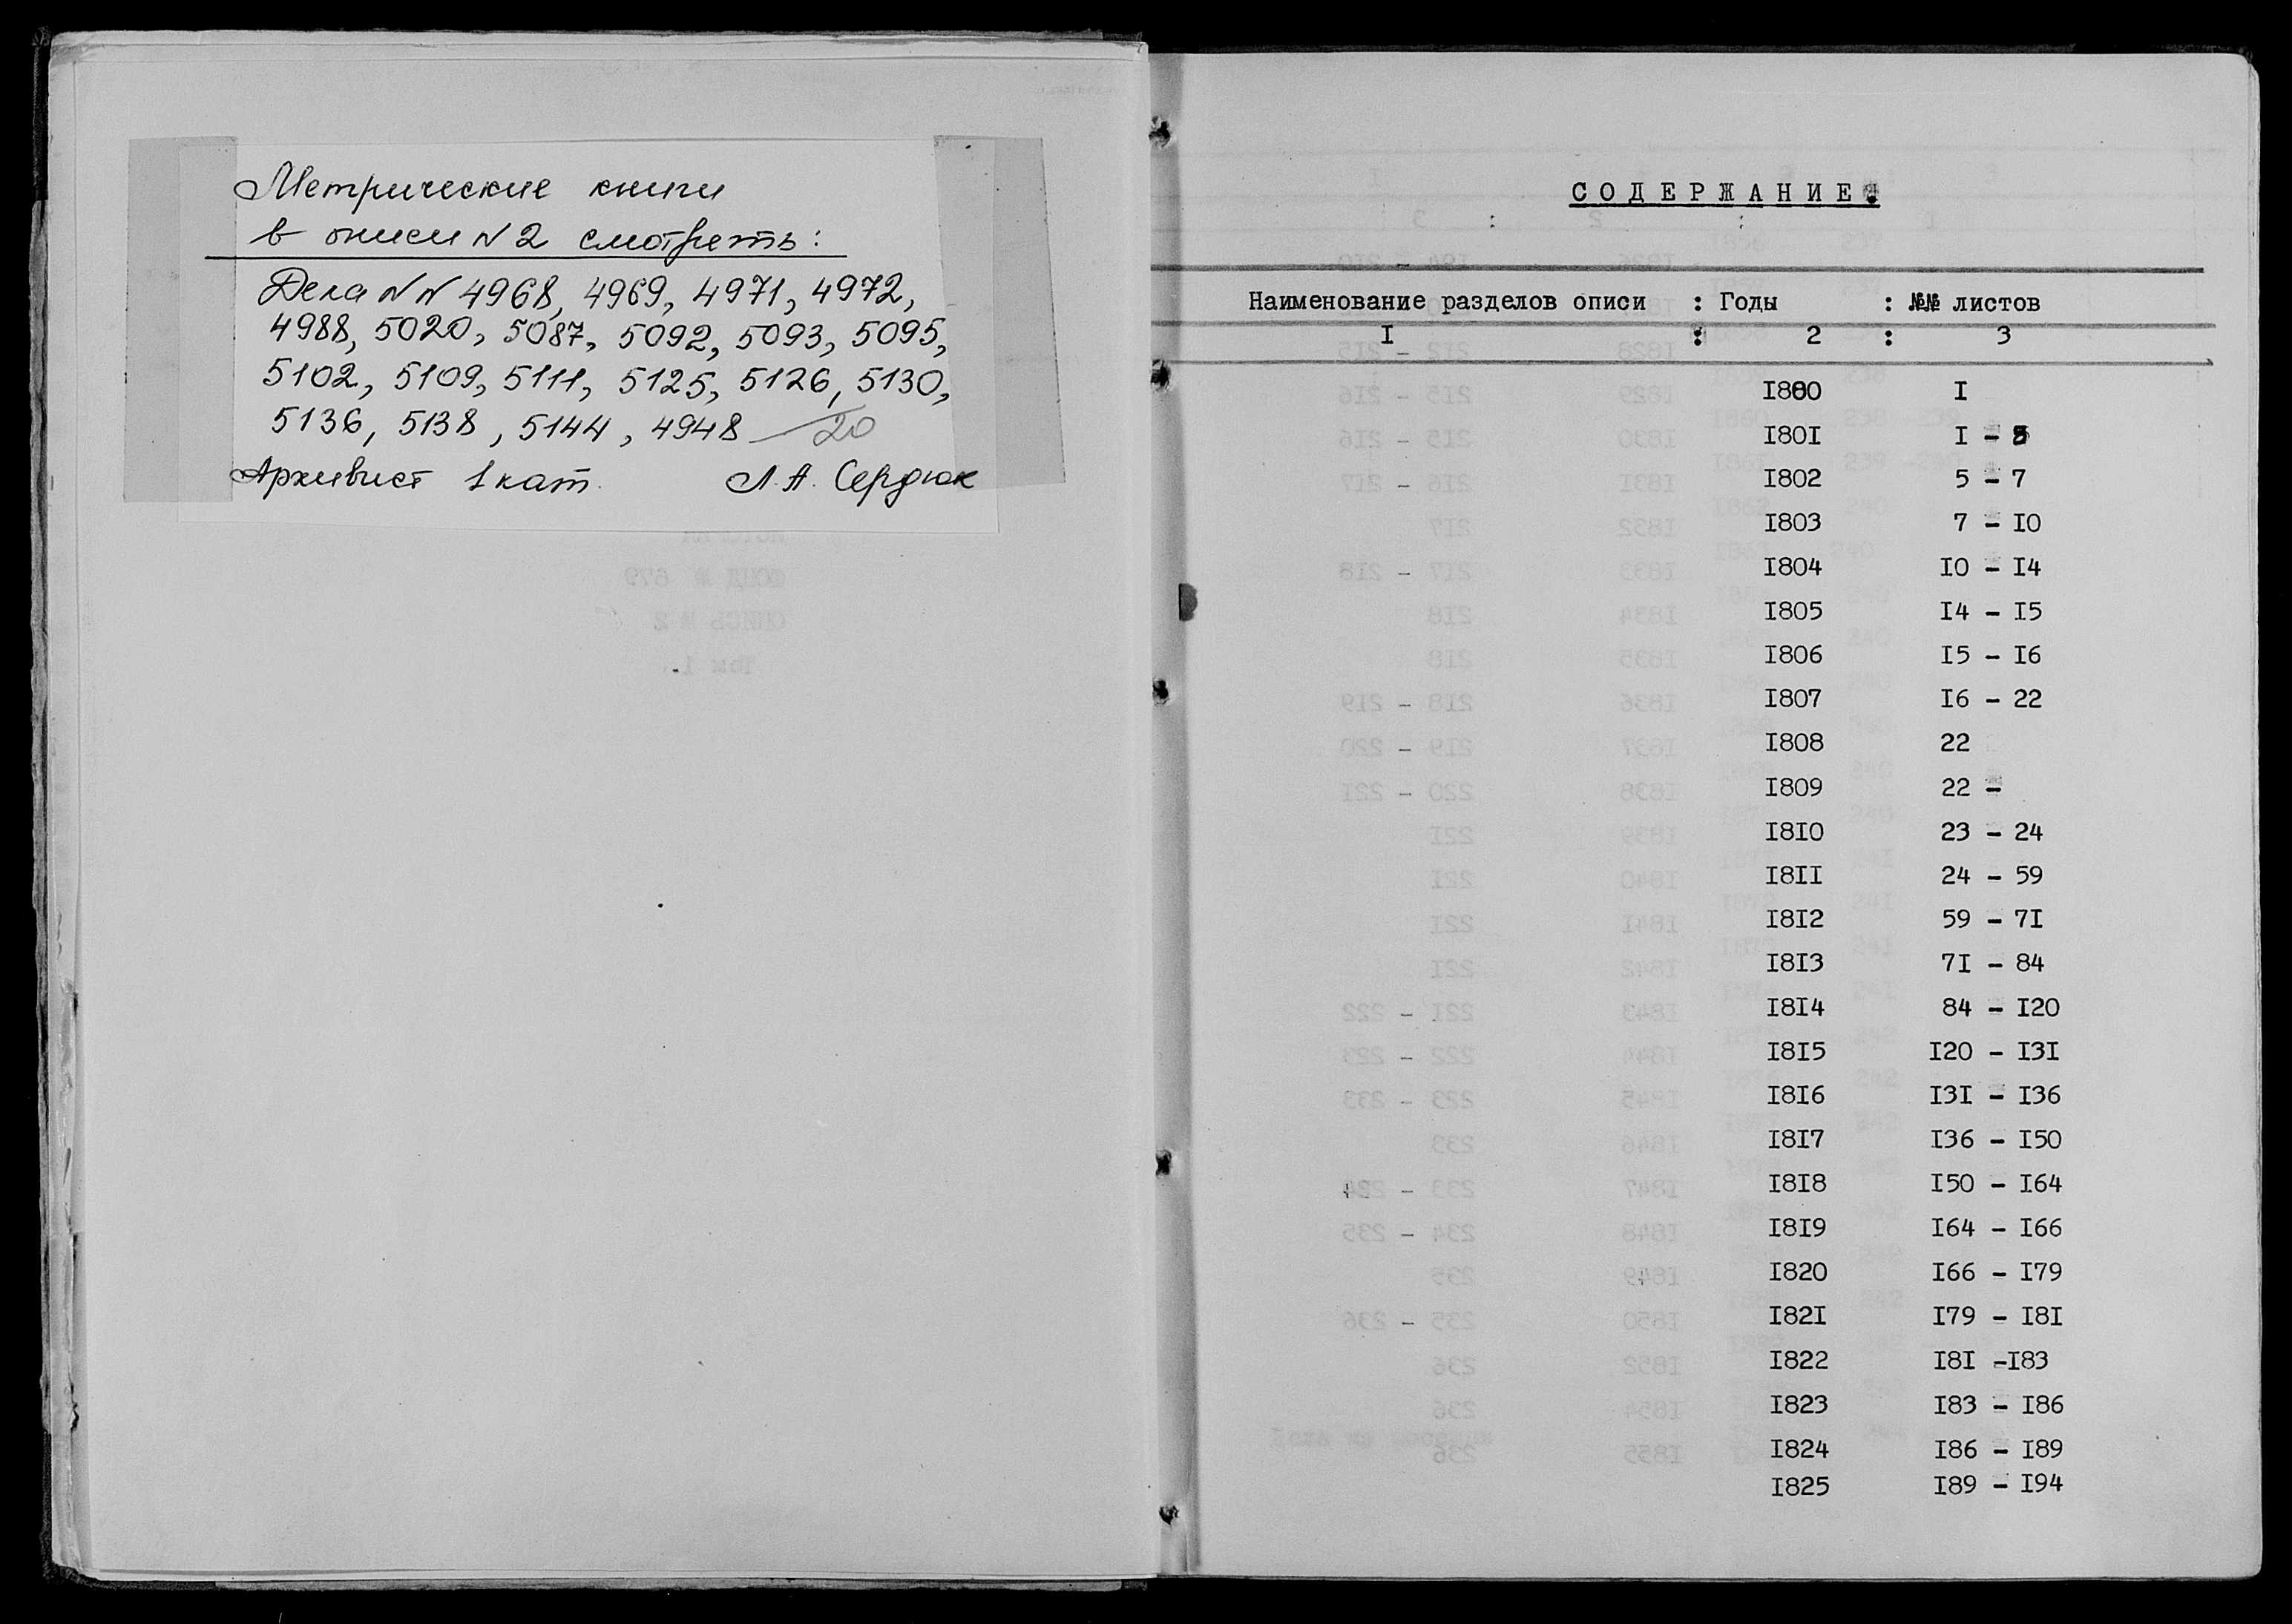 Метрические книги
в описи N 2 смотреть:
Дела NN 4968, 4969, 4971, 4972,
4988, 5020, 5087, 5092, 5093, 5095,
5102, 5109, 5111, 5125, 5126, 5130,
5136, 5138, 5144, 4948 — 20
Архивист 1 кат. Л.А. Сердюк
СОДЕРЖАНИЕ:
Наименование разделов описи : Годы : №№ листов
I : 2 : 3
I800 I
I80I I - 5
I802 5 - 7
I803 7 - I0
I804 I0 - I4
I805 I4 - I5
I806 I5 - I6
I807 I6 - 22
I808 22
I809 22 -
I8I0 23 - 24
I8II 24 - 59
I8I2 59 - 7I
I8I3 7I - 84
I8I4 84 - I20
I8I5 I20 - I3I
I8I6 I3I - I36
I8I7 I36 - I50
I8I8 I50 - I64
I8I9 I64 - I66
I820 I66 - I79
I82I I79 - I8I
I822 I8I -I83
I823 I83 - I86
I824 I86 - I89
I825 I89 - I94